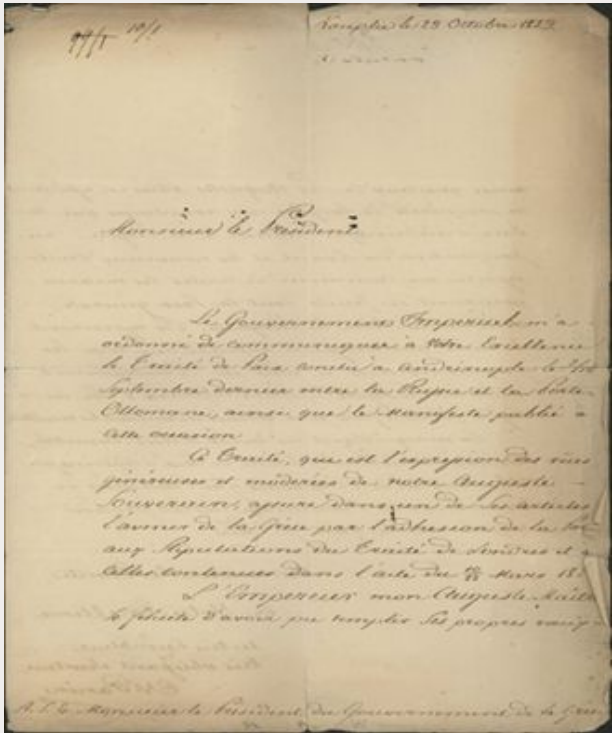 10/1
Nauplie le 29 Octobre 1829
Monsieur le Président
Le Gouvernement Impérial m'a
ordonné de communiquer à Votre Excellence
le Traité de Paix conclu à Andrinople le 2/14
Septembre dernier entre la Russie et la Porte
Ottomane, ainsi que le Manifeste publié à
cette occasion
Ce Traité, qui est l'expression des vues
généreuses et modérées de notre Auguste
Souverain, assure dans un de ses articles
l'avenir de la Grèce par l'adhésion de la
aux Stipulations du Traité de Londres et à
celles contenues dans l'acte du Mars 18
L'Empereur mon Auguste Maître
se félicite d'avoir pu remplir ses propres
A. S. E. Monsieur le Président du Gouvernement de la Grèce